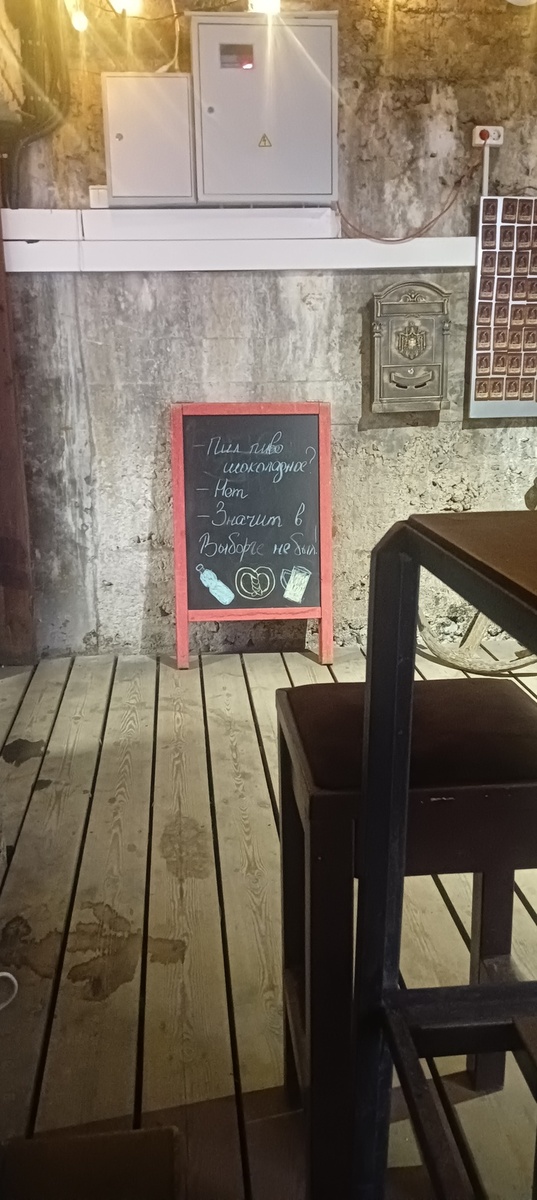 - Пил пиво
шоколадное?
- Нет
- Значит в
Выборге не был!